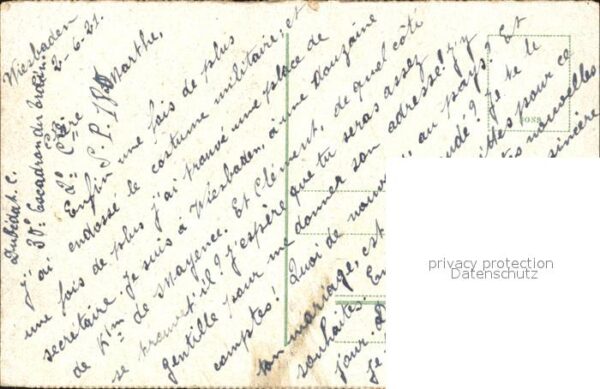 Wiesbaden
2-6-21.
Dubidat. C.
30e Escadron du train
2e Cie
S. P. 77
Marthe,
Enfin une fois de plus
J'ai endossé le costume militaire; et
une fois de plus j'ai trouvé une place de
secrétaire. Je suis à Wiesbaden, à une douzaine
de Km de Mayence. Et Clément, de quel côté
se trouve t'il? J'espère que tu seras assez
gentille pour me donner son adresse! J'y
compte! Quoi de nouveau au pays? Et
ton mariage, est
souhaites. En
jour,
Je te le
pour ce
nouvelles
sincère
Je
SNOB
privacy protection
Datenschutz